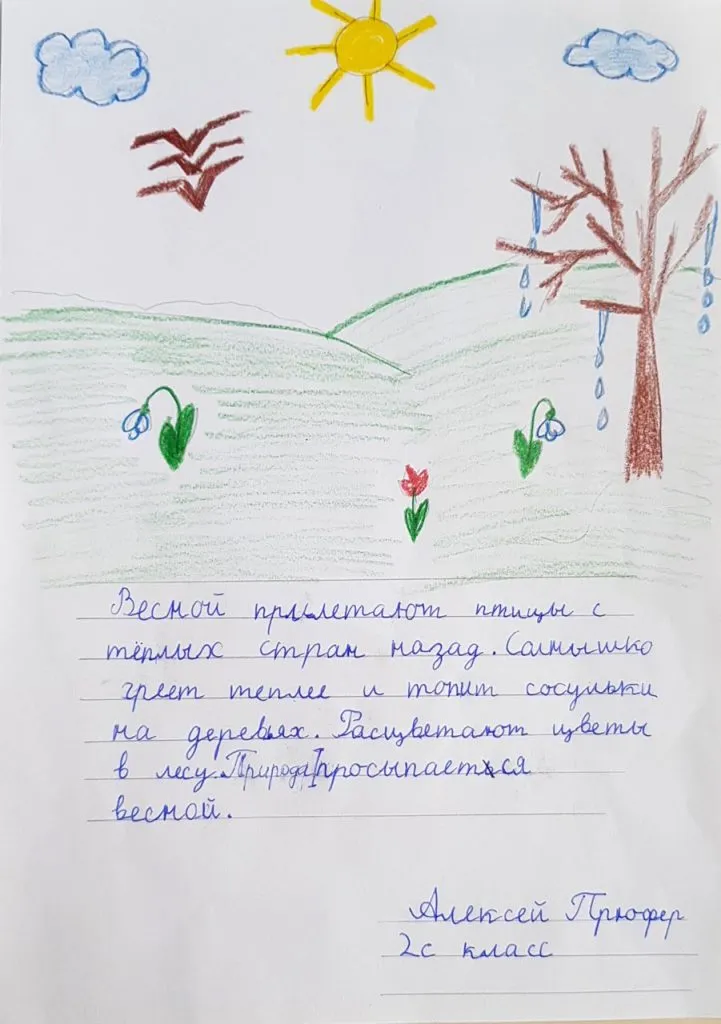 Весной прилетают птицы с
тёплых стран назад. Солнышко
греет теплее и топит сосульки
на деревьях. Расцветают цветы
в лесу. Природа просыпается
весной.
Алексей Прюфер
2с класс